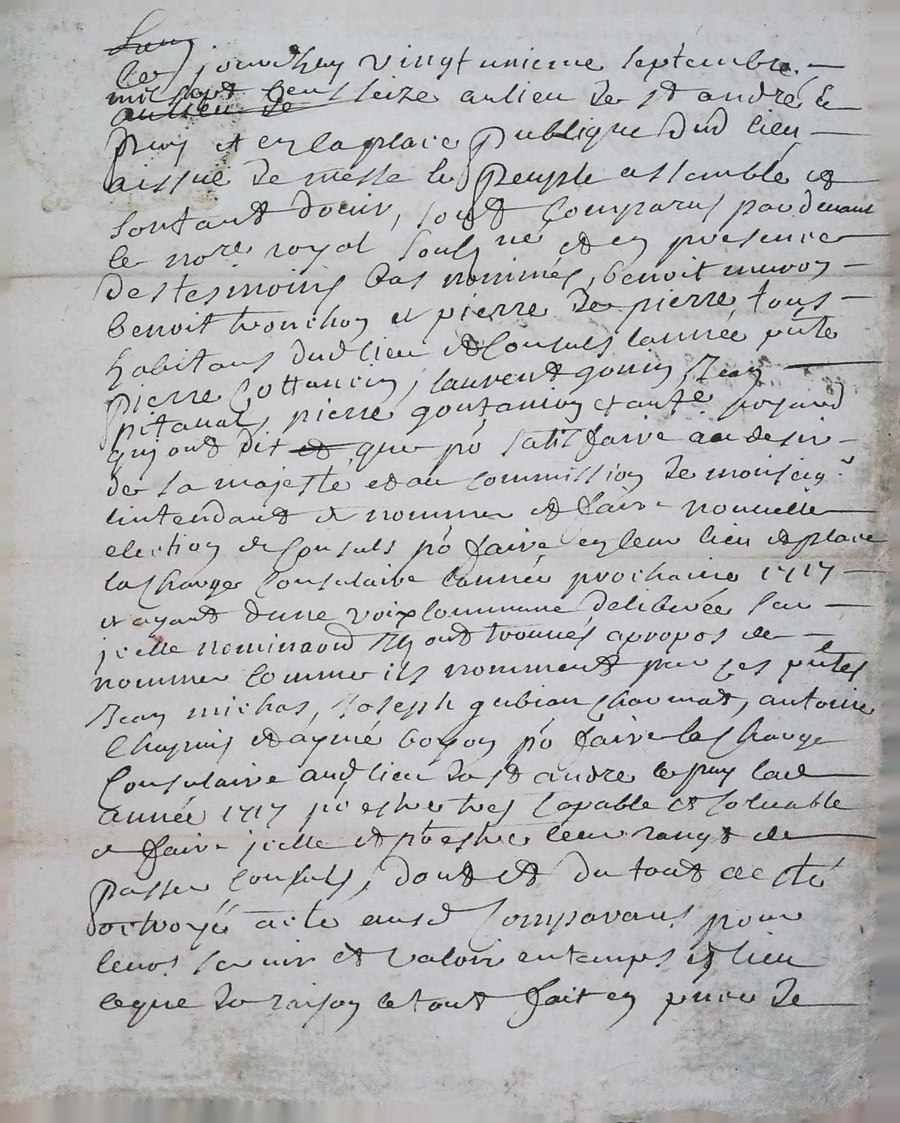 Cejourdhuy vingt unieme septembre
mil sept cens seize au lieu de st andré le
au lieu de
puy et en la place publique dud lieu
a issue de messe le peuple assemblé et
sortant dicelle, sont comparus pardevant
le nore royal soubsné et en presence
des tesmoins bas nommés, benoit
benoit tronchon et pierre de pierre tous
habitans dud lieu et consuls lannée pnte
pierre Cottancin, laurend gonin, Jean
pitaval, pierre goutanion et ante poyard
qui ont dit et que po satisfaire au desir
de sa majesté et au commission de monseigr
lintendant de nommer et faire nouvelle
election de Consuls po faire en leur lieu et place
la charge Consulaire lannée prochaine 1717
et ayant dune voix commune deliberée sur
icelle nominaon Ils ont trouvés apropos de
nommer comme ils nomment par ces pntes
Jean michas, Joseph gubian Charmat, antoine
Chapuis et aymé boyon po faire la charge
Consulaire aud lieu de st andre le puy lad
année 1717 po estre tres capable et soluable
a faire icelle et po estre leur rangt de
passer Consuls, dont et du tout a esté
octroyé acte ausd Comparans pour
leurs servir et valoir en temps et lieu
ce que de raison le tout fait en pnce de